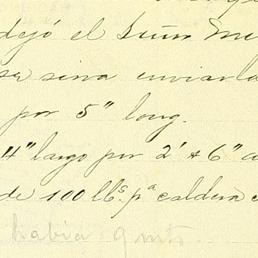 dejó el Señor M
se sirva enviarla
por 5" long.
4" largo por 2' & 6" a
de 100 lbs. pa caldera
había qmts.